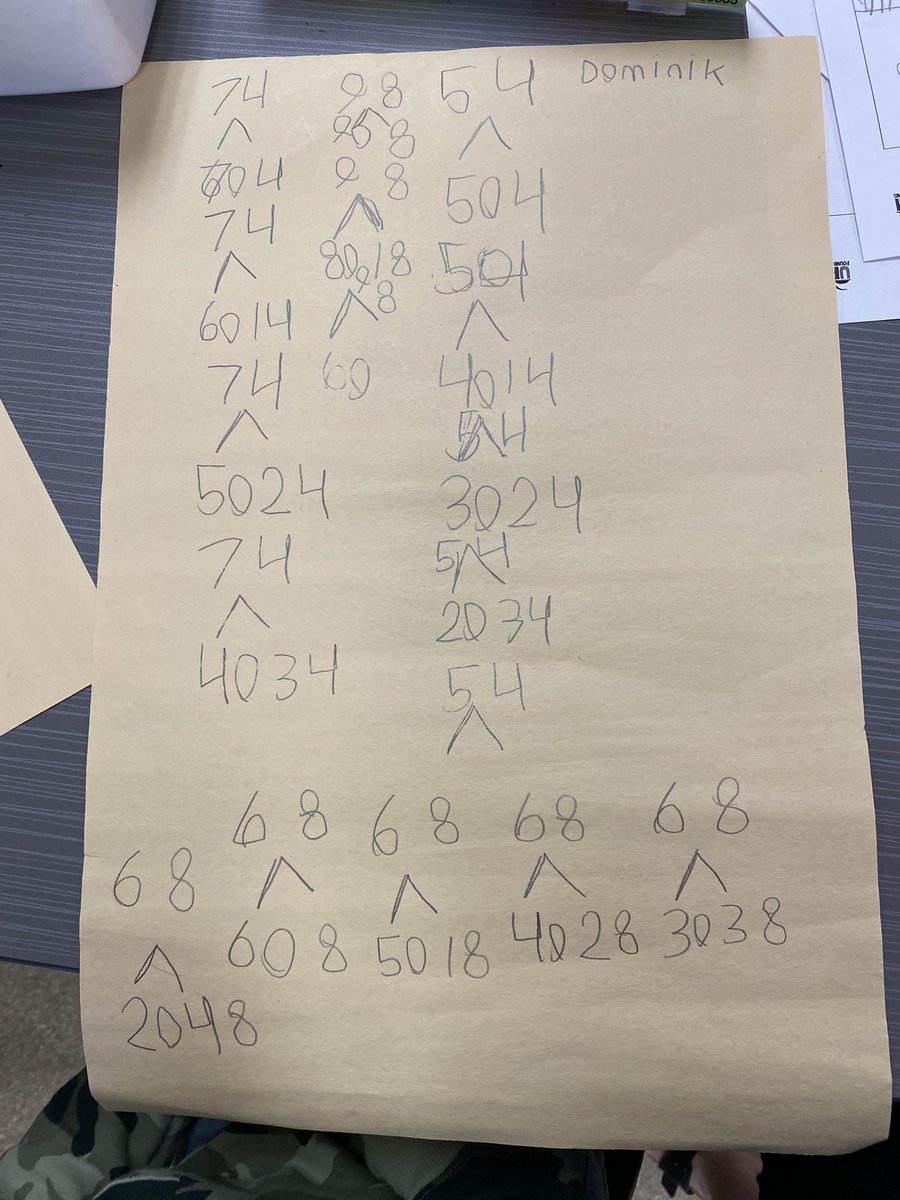 74 98 54 Dominik
98 8
704
504
74
9 8
6014
80 18
504
8
74
60
4014
54
5024
3024
74
54
4034
2034
54
68 68 68 68
68
608 5018 4028 3038
2048